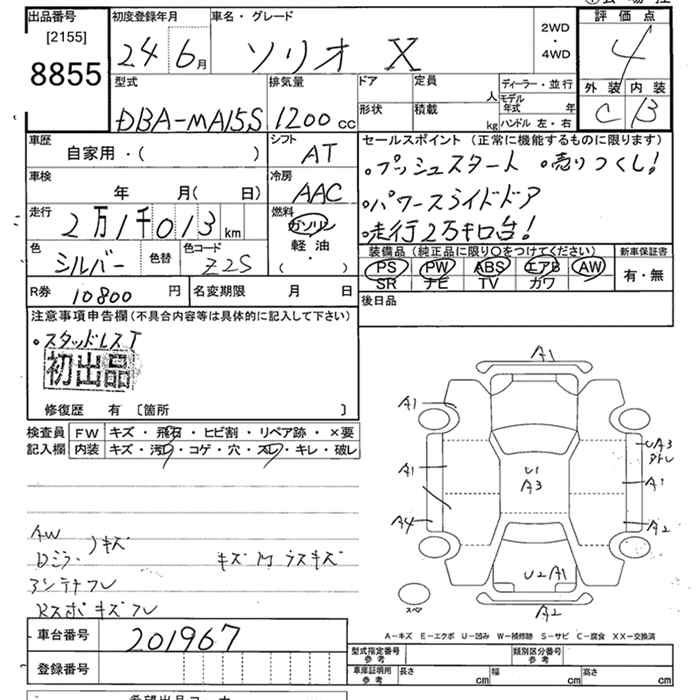 出品番号
[2155]
8855
初度登録年月
24 6月
車名・グレード
ソリオ X
2WD
・
4WD
評価点
4
外装 内装
C B
型式
DBA-MA15S
排気量
1200 cc
ドア
形状
定員 人
積載 kg
ディーラー・並行
モデル年式 年
ハンドル 左・右
車歴
自家用・( )
シフト
AT
車検
年 月( 日)
冷房
AAC
走行
2万1千013 km
燃料
ガソリン
軽油
( ・ )
色
シルバー
色替
色コード
Z2S
R券 10800 円
名変期限 月 日
セールスポイント (正常に機能するものに限ります)
・プッシュスタート ・売りつくし!
・パワースライドドア
・走行2万キロ台!
装備品 (純正品に限り○をつけてください)
PS PW ABS エアB AW
SR ナビ TV カワ
新車保証書
有・無
後日品
注意事項申告欄 (不具合内容等は具体的に記入して下さい)
・スタッドレスT
初出品
修復歴 有 [箇所 ]
検査員記入欄
FW キズ・飛石・ヒビ割・リペア跡・×要
内装 キズ・汚れ・コゲ・穴・スレ・キレ・破レ
AW
Dミラー ノキズ
キズ
ラスキズ
アンテナフレ
Rスポキズフレ
A1
A1
UA3
A1
U1
A3
A1
A4
A2
U2 A1
スペア
A2
A-キズ E-エクボ U-凹み W-補修跡 S-サビ C-腐食 XX-交換済
車台番号 201967
登録番号
型式指定番号 参考
類別区分番号 参考
車庫証明用 参考
長さ cm 幅 cm 高さ cm